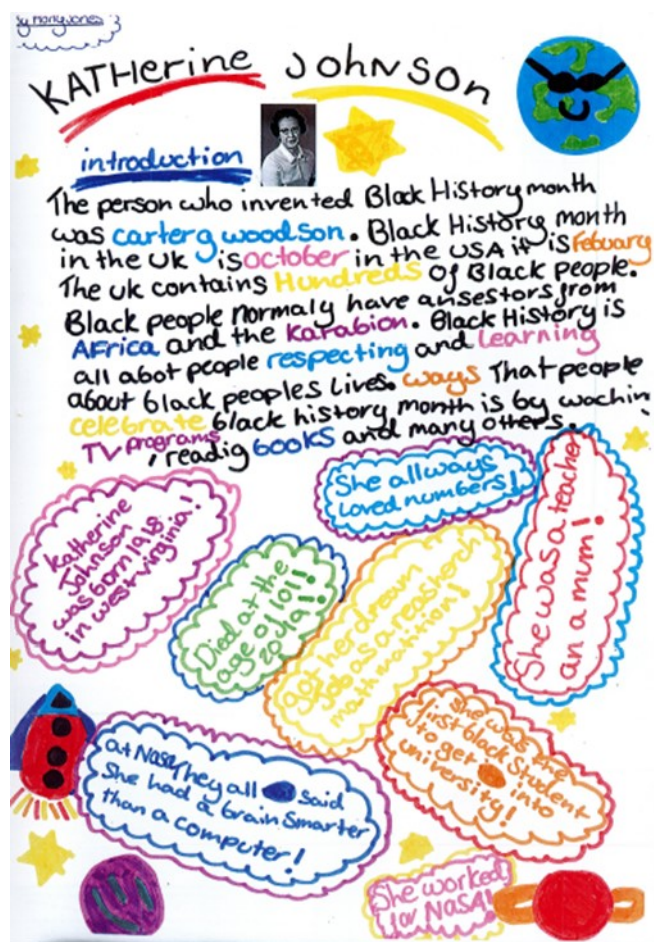 by Mollyjones
KATHerine JOHNSON
introduction
The person who invented Black History month
was carter g woodson. Black History month
in the UK is october in the USA it is Febuary
The uk contains Hundreds of Black people.
Black people normaly have ansestors from
AFrica and the Karabion. Black History is
all abot people respecting and Learning
about black peoples lives. ways That people
celebrate black history month is by wachin
TV programs, readig books and many others.
She allways
Loved numbers!
She was a teacher
an a mum!
Katherine
Johnson
was born 1918
in west virginia!
Died at the
age of 101!
2019!
got her dream
job as a reasherch
mathmatition!
at Nasa They all said
She had a brain Smarter
than a computer!
She was the
first black Student
to get into
university!
She worked
for NASA!